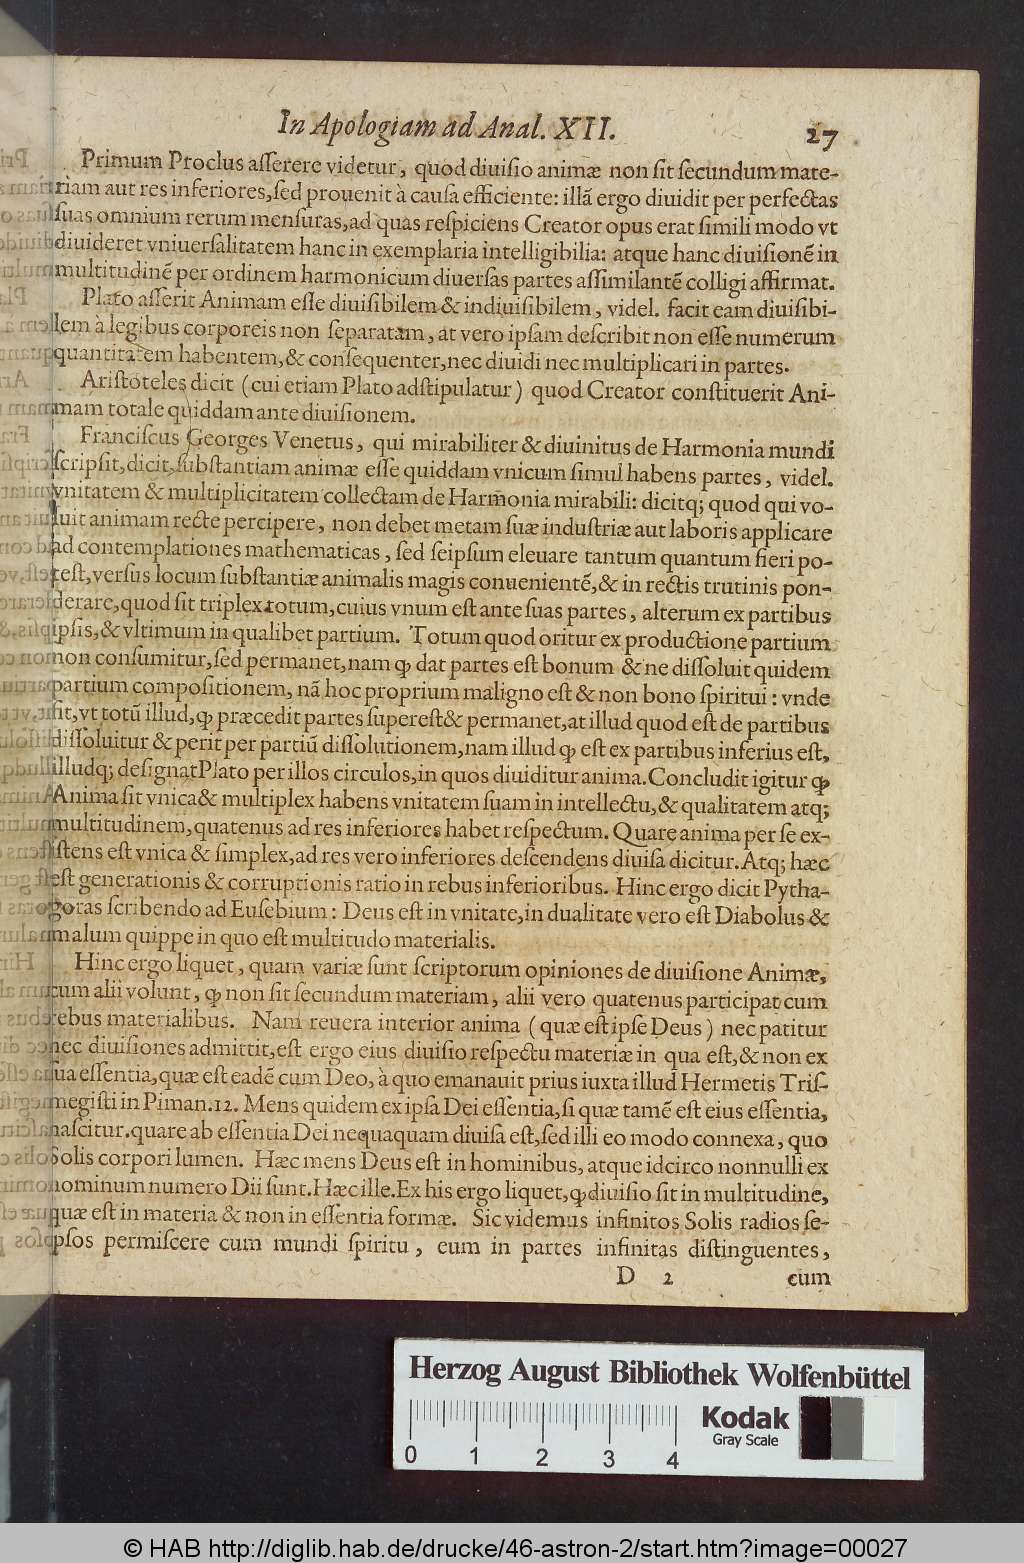 In Apologiam ad Anal. XII. 27
Primum Proclus aſſerere videtur, quod diuiſio animæ non ſit ſecundum mate-
riam aut res inferiores, ſed prouenit à cauſa efficiente: illā ergo diuidit per perfectas
ſuas omnium rerum menſuras, ad quas reſpiciens Creator opus erat ſimili modo vt
diuideret vniuerſalitatem hanc in exemplaria intelligibilia: atque hanc diuiſionē in
multitudinē per ordinem harmonicum diuerſas partes aſſimilantē colligi affirmat.
Plato aſſerit Animam eſſe diuiſibilem & indiuiſibilem, videl. facit eam diuiſibi-
lem à legibus corporeis non ſeparatam, at vero ipſam deſcribit non eſſe numerum
quantitatem habentem, & conſequenter, nec diuidi nec multiplicari in partes.
Ariſtoteles dicit (cui etiam Plato adſtipulatur) quod Creator conſtituerit Ani-
mam totale quiddam ante diuiſionem.
Franciſcus Georges Venetus, qui mirabiliter & diuinitus de Harmonia mundi
ſcripſit, dicit, ſubſtantiam animæ eſſe quiddam vnicum ſimul habens partes, videl.
vnitatem & multiplicitatem collectam de Harm̄onia mirabili: dicitq; quod qui vo-
luit animam recte percipere, non debet metam ſuæ induſtriæ aut laboris applicare
ad contemplationes mathematicas, ſed ſeipſum eleuare tantum quantum fieri po-
teſt, verſus locum ſubſtantiæ animalis magis conuenientē, & in rectis trutinis pon-
derare, quod ſit triplex totum, cuius vnum eſt ante ſuas partes, alterum ex partibus
ipſis, & vltimum in qualibet partium. Totum quod oritur ex productione partium
non conſumitur, ſed permanet, nam ꝙ dat partes eſt bonum & ne diſſoluit quidem
partium compoſitionem, nā hoc proprium maligno eſt & non bono ſpiritui: vnde
fit, vt totū illud, ꝙ præcedit partes ſupereſt & permanet, at illud quod eſt de partibus
diſſoluitur & perit per partiū diſſolutionem, nam illud ꝙ eſt ex partibus inferius eſt,
illudq; deſignat Plato per illos circulos, in quos diuiditur anima. Concludit igitur ꝙ
Anima ſit vnica & multiplex habens vnitatem ſuam in intellectu, & qualitatem atq;
multitudinem, quatenus ad res inferiores habet reſpectum. Quare anima per ſe ex-
iſtens eſt vnica & ſimplex, ad res vero inferiores deſcendens diuiſa dicitur. Atq; hæc
eſt generationis & corruptionis ratio in rebus inferioribus. Hinc ergo dicit Pytha-
goras ſcribendo ad Euſebium: Deus eſt in vnitate, in dualitate vero eſt Diabolus &
malum quippe in quo eſt multitudo materialis.
Hinc ergo liquet, quam variæ ſunt ſcriptorum opiniones de diuiſione Animæ,
cum alii volunt, ꝙ non ſit ſecundum materiam, alii vero quatenus participat cum
rebus materialibus. Nam reuera interior anima (quæ eſt ipſe Deus) nec patitur
nec diuiſiones admittit, eſt ergo eius diuiſio reſpectu materiæ in qua eſt, & non ex
ſua eſſentia, quæ eſt eadē cum Deo, à quo emanauit prius iuxta illud Hermetis Triſ-
megiſti in Piman. 12. Mens quidem ex ipſa Dei eſſentia, ſi quæ tamē eſt eius eſſentia,
naſcitur. quare ab eſſentia Dei nequaquam diuiſa eſt, ſed illi eo modo connexa, quo
Solis corpori lumen. Hæc mens Deus eſt in hominibus, atque idcirco nonnulli ex
hominum numero Dii ſunt. Hæc ille. Ex his ergo liquet, ꝙ diuiſio ſit in multitudine,
quæ eſt in materia & non in eſſentia formæ. Sic videmus infinitos Solis radios ſe-
ipſos permiſcere cum mundi ſpiritu, eum in partes infinitas diſtinguentes,
D 2 cum
Herzog August Bibliothek Wolfenbüttel
Kodak
Gray Scale
0 1 2 3 4
© HAB http://diglib.hab.de/drucke/46-astron-2/start.htm?image=00027